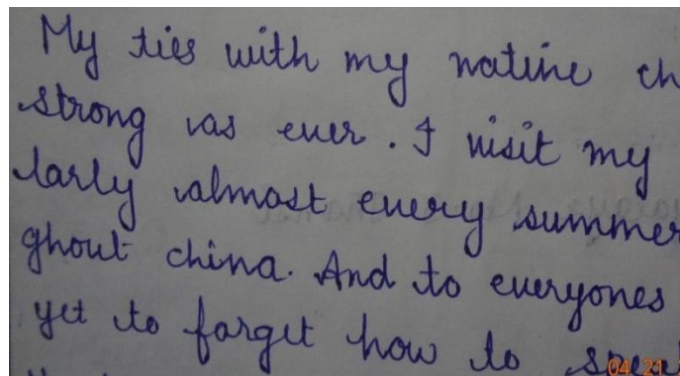 My ties with my native ch
strong as ever. I visit my
larly almost every summer
ghout china. And to everyones
yet to forget how to spea
04 21